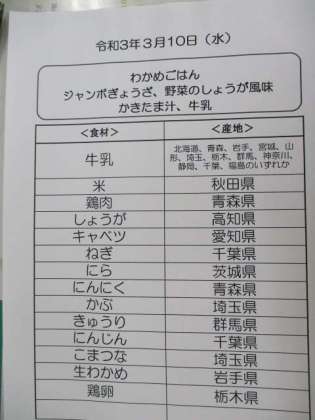 令和3年3月10日(水)
わかめごはん
ジャンボぎょうざ、野菜のしょうが風味
かきたま汁、牛乳
<食材> <産地>
牛乳 北海道、青森、岩手、宮城、山
形、埼玉、栃木、群馬、神奈川、
静岡、千葉、福島のいずれか
米 秋田県
鶏肉 青森県
しょうが 高知県
キャベツ 愛知県
ねぎ 千葉県
にら 茨城県
にんにく 青森県
かぶ 埼玉県
きゅうり 群馬県
にんじん 千葉県
こまつな 埼玉県
生わかめ 岩手県
鶏卵 栃木県